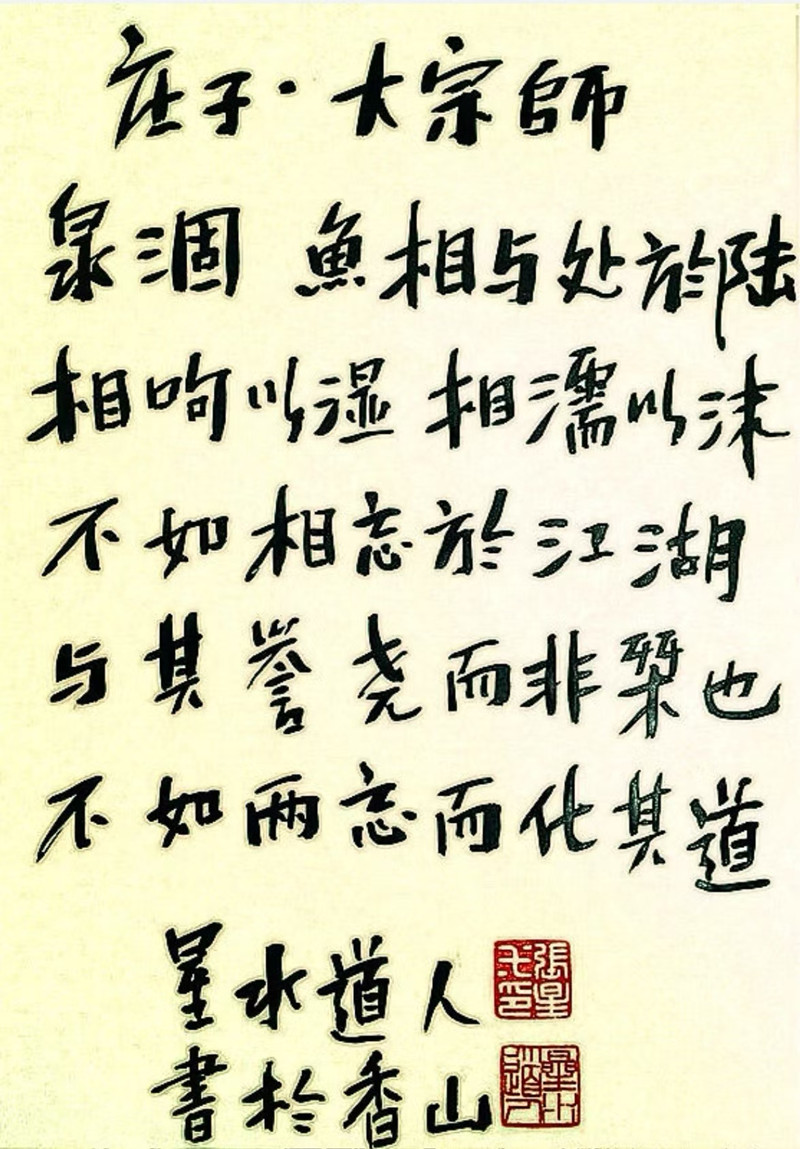 庄子·大宗師
泉涸 魚相与处於陆
相呴以湿 相濡以沫
不如相忘於江湖
与其誉尧而非桀也
不如两忘而化其道
星水道人
書於香山